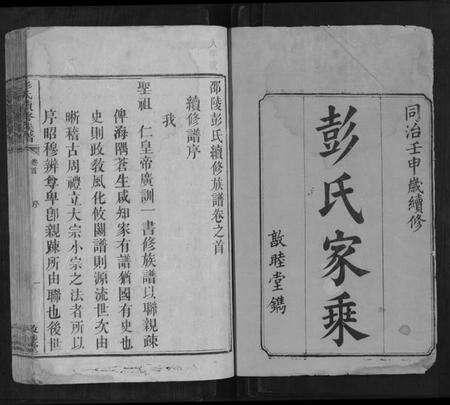 同治壬申歲續修
彭氏家乘
敦睦堂鐫
邵陵彭氏續修族譜卷之首
續修譜序
我
聖祖 仁皇帝廣訓一書修族譜以聯親疎
俾海隅蒼生咸知家有譜猶國有史也
史則政敎風化攸關譜則源流世次由
晰稽古周禮立大宗小宗之法者所以
序昭穆辨尊卑卽親疎所由聯也後世
卷首
序
一